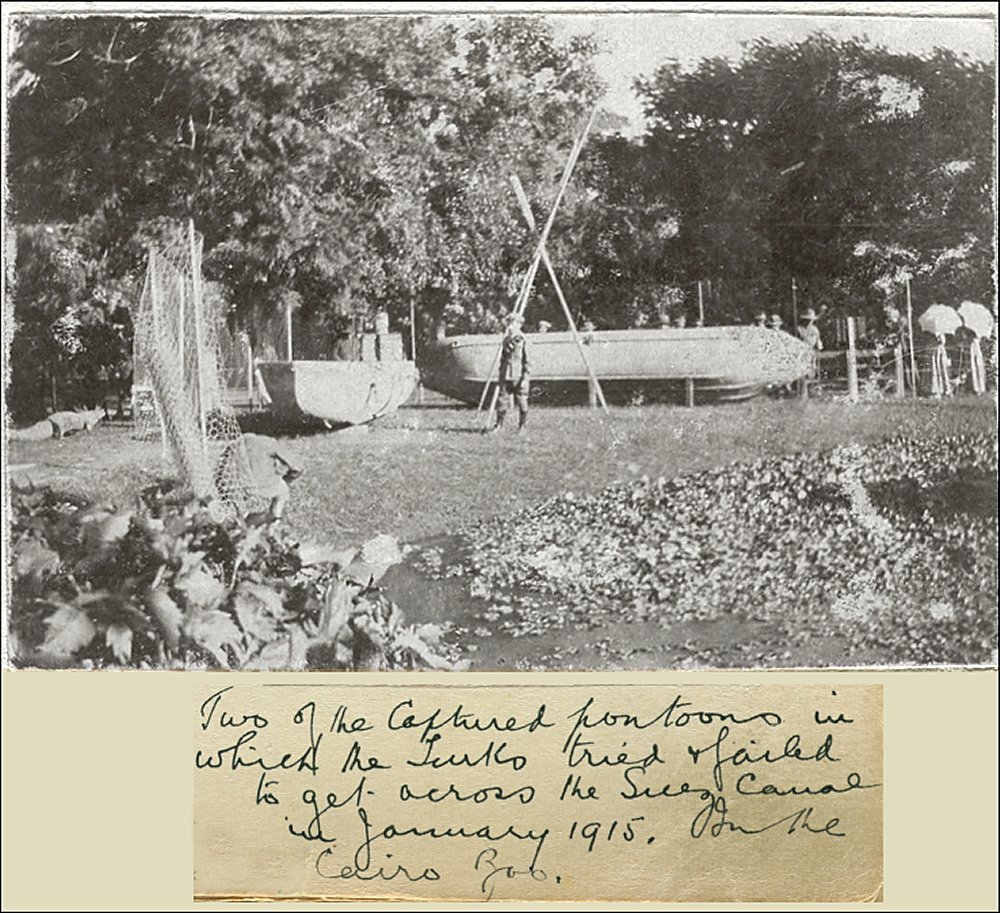 Two of the Captured pontoons in
which the Turks tried & failed
to get across the Suez Canal
in January 1915. In the
Cairo Zoo.